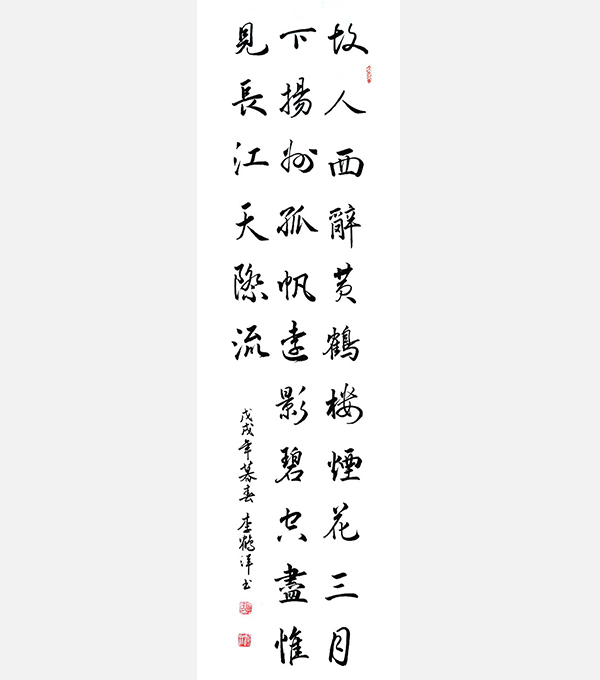 故人西辭黄鶴楼煙花三月
下揚州孤帆遠影碧空盡惟
見長江天際流
戊戌年暮春 李鶴洋书